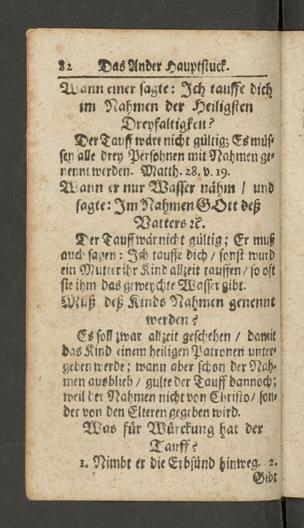 82 Das Ander Hauptstuck.
Wann einer sagte: Ich tauffe dich
im Nahmen der Heiligsten
Dreyfaltigkeit?
Der Tauff wäre nicht gültig; Es müs-
sen alle drey Persohnen mit Nahmen ge-
nennt werden. Matth. 28. v. 19.
Wann er nur Wasser nähm / und
sagte: Im Nahmen GOtt deß
Vatters ꝛc.
Der Tauff wär nicht gültig; Er muß
auch sagen: Ich tauffe dich / sonst wurd
ein Mutter ihr Kind allzeit tauffen / so oft
sie ihm das geweychte Wasser gibt.
Muß deß Kinds Nahmen genennt
werden?
Es soll zwar allzeit geschehen / damit
das Kind einem heiligen Patronen unter-
geben werde; wann aber schon der Nah-
men ausblieb / gulte der Tauff dannoch;
weil der Nahmen nicht von Christo / son-
der von den Elteren gegeben wird.
Was für Würckung hat der
Tauff?
1. Nimbt er die Erbsünd hinweg. 2.
Gibt